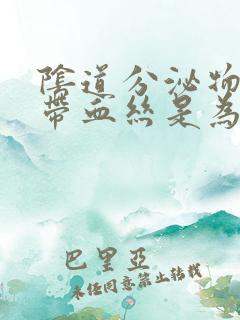 陰道分泌物
帶血絲是為
巴里亞
未经同意禁止转载